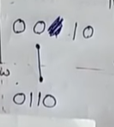 00 10
0110